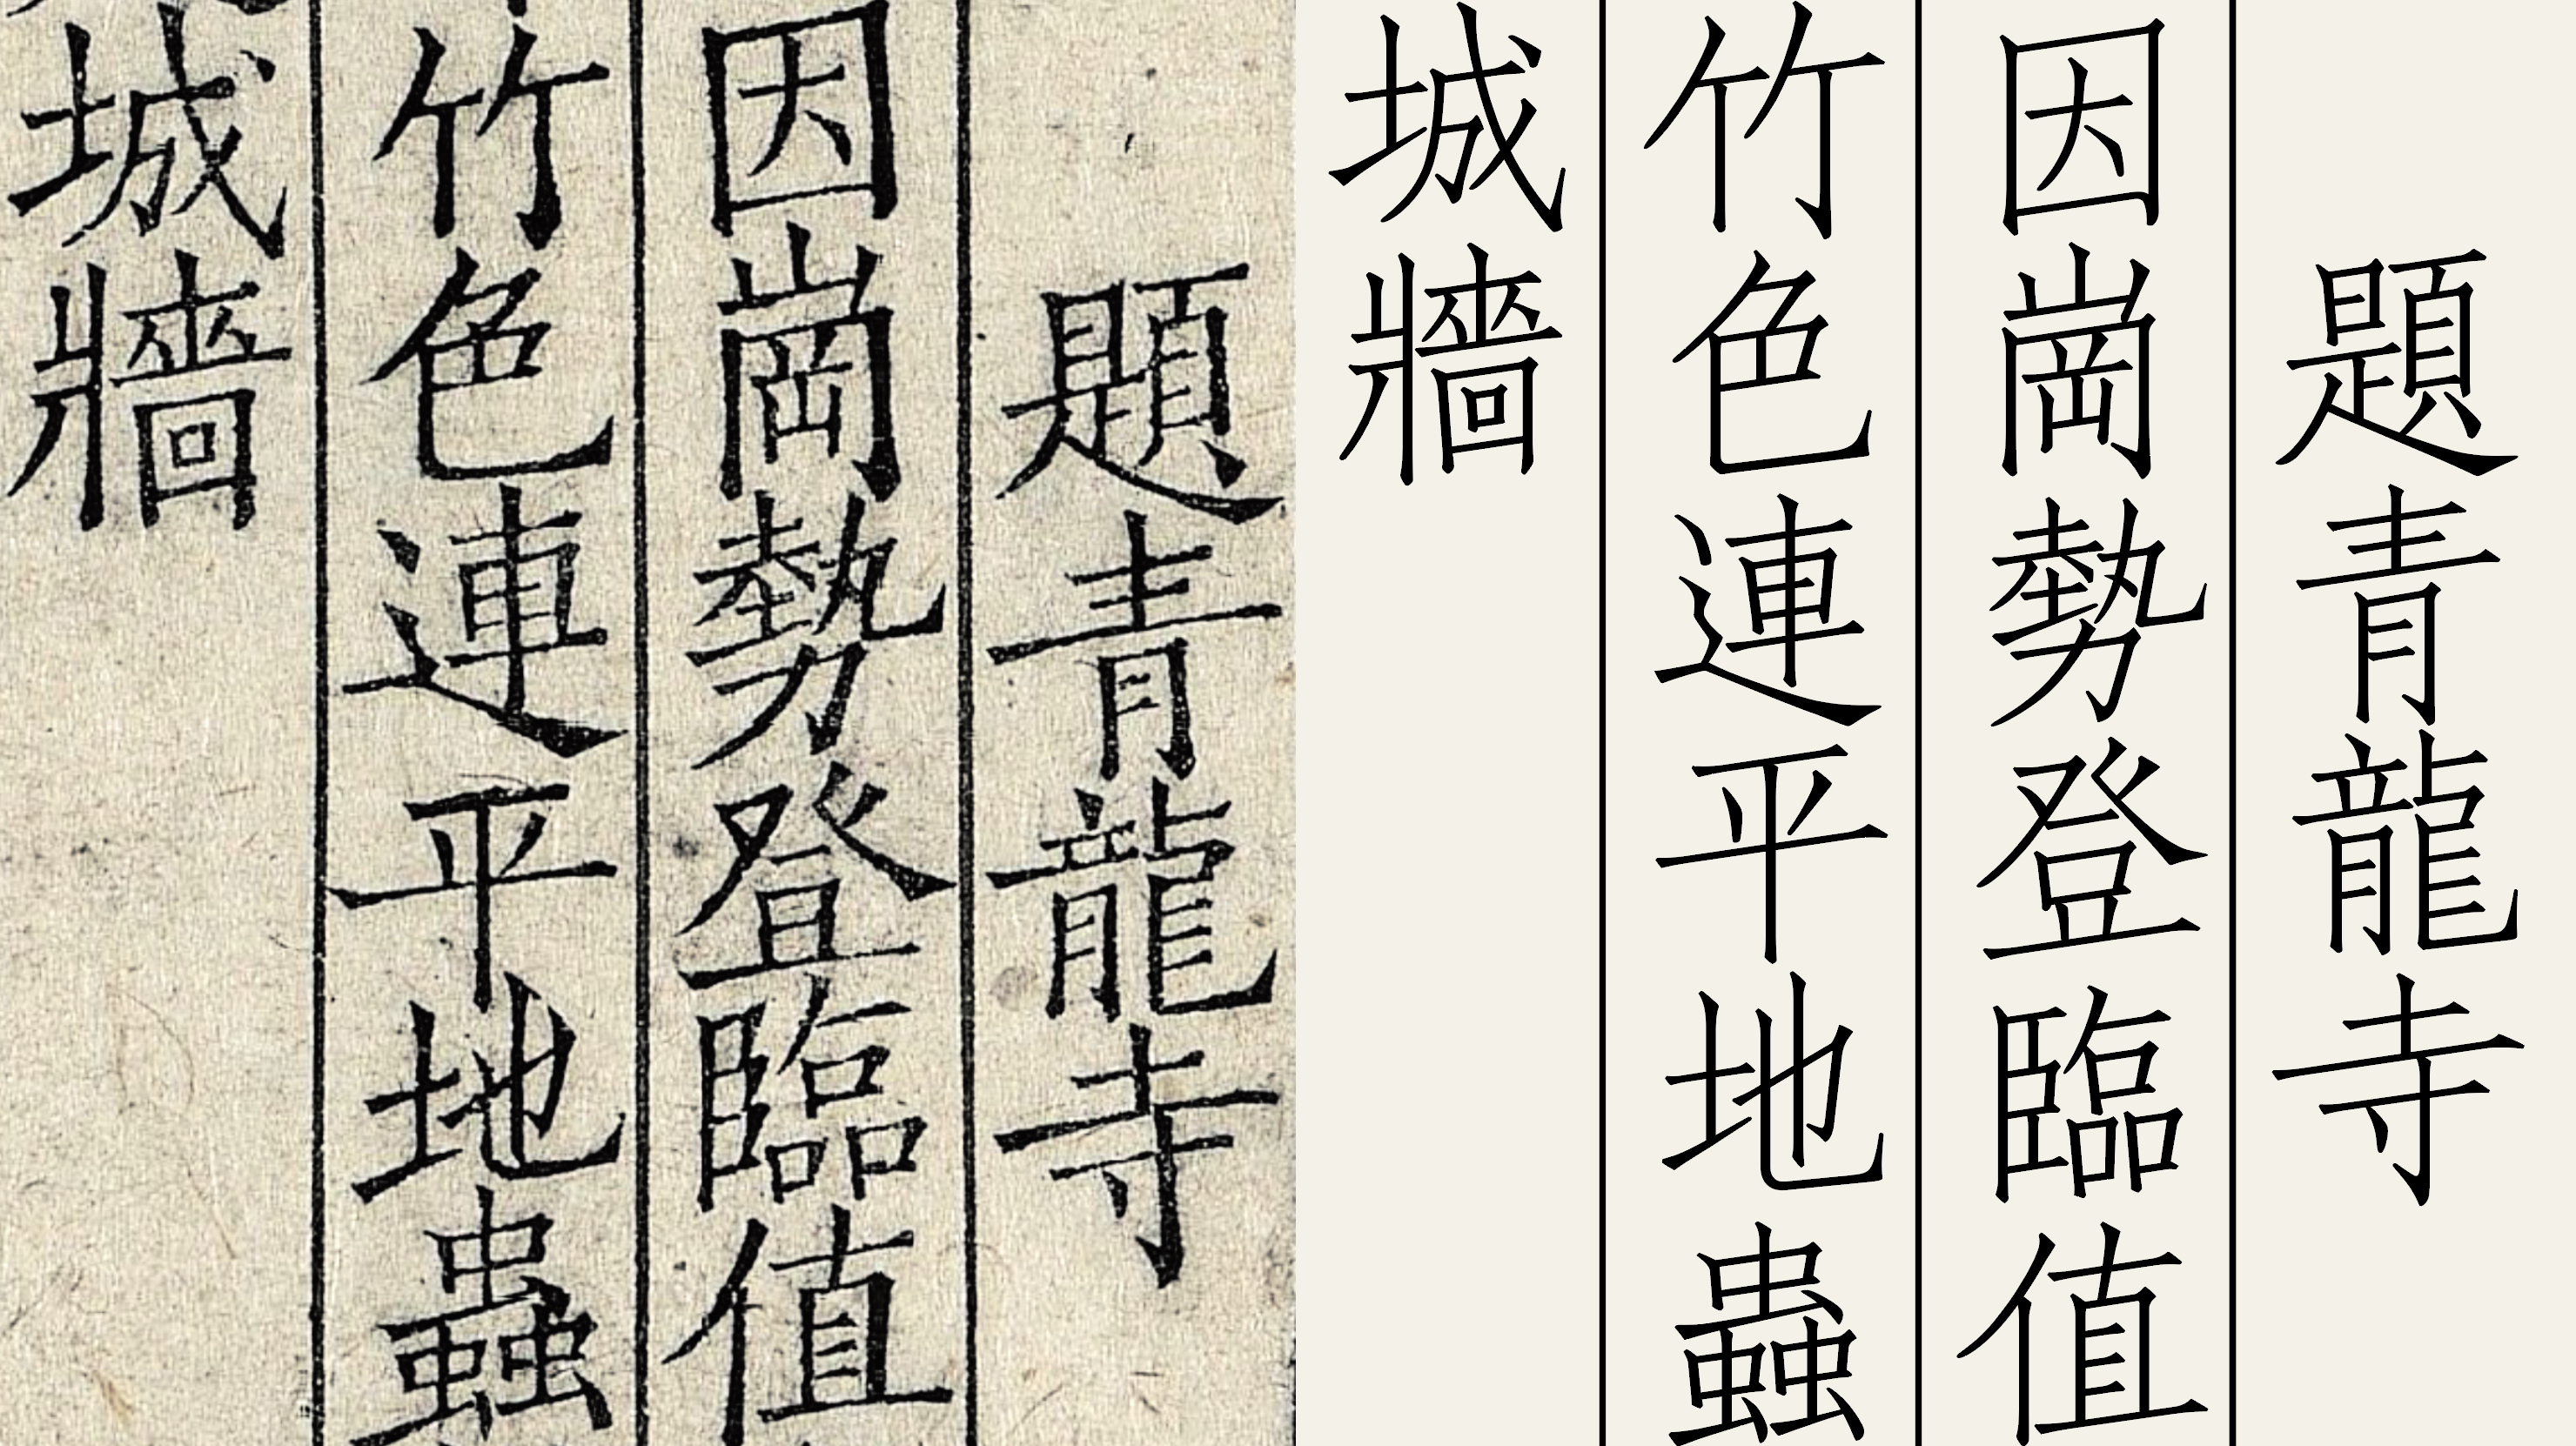 題青龍寺
因崗勢登臨值
竹色連平地蟲
城牆
題青龍寺
因崗勢登臨值
竹色連平地蟲
城牆